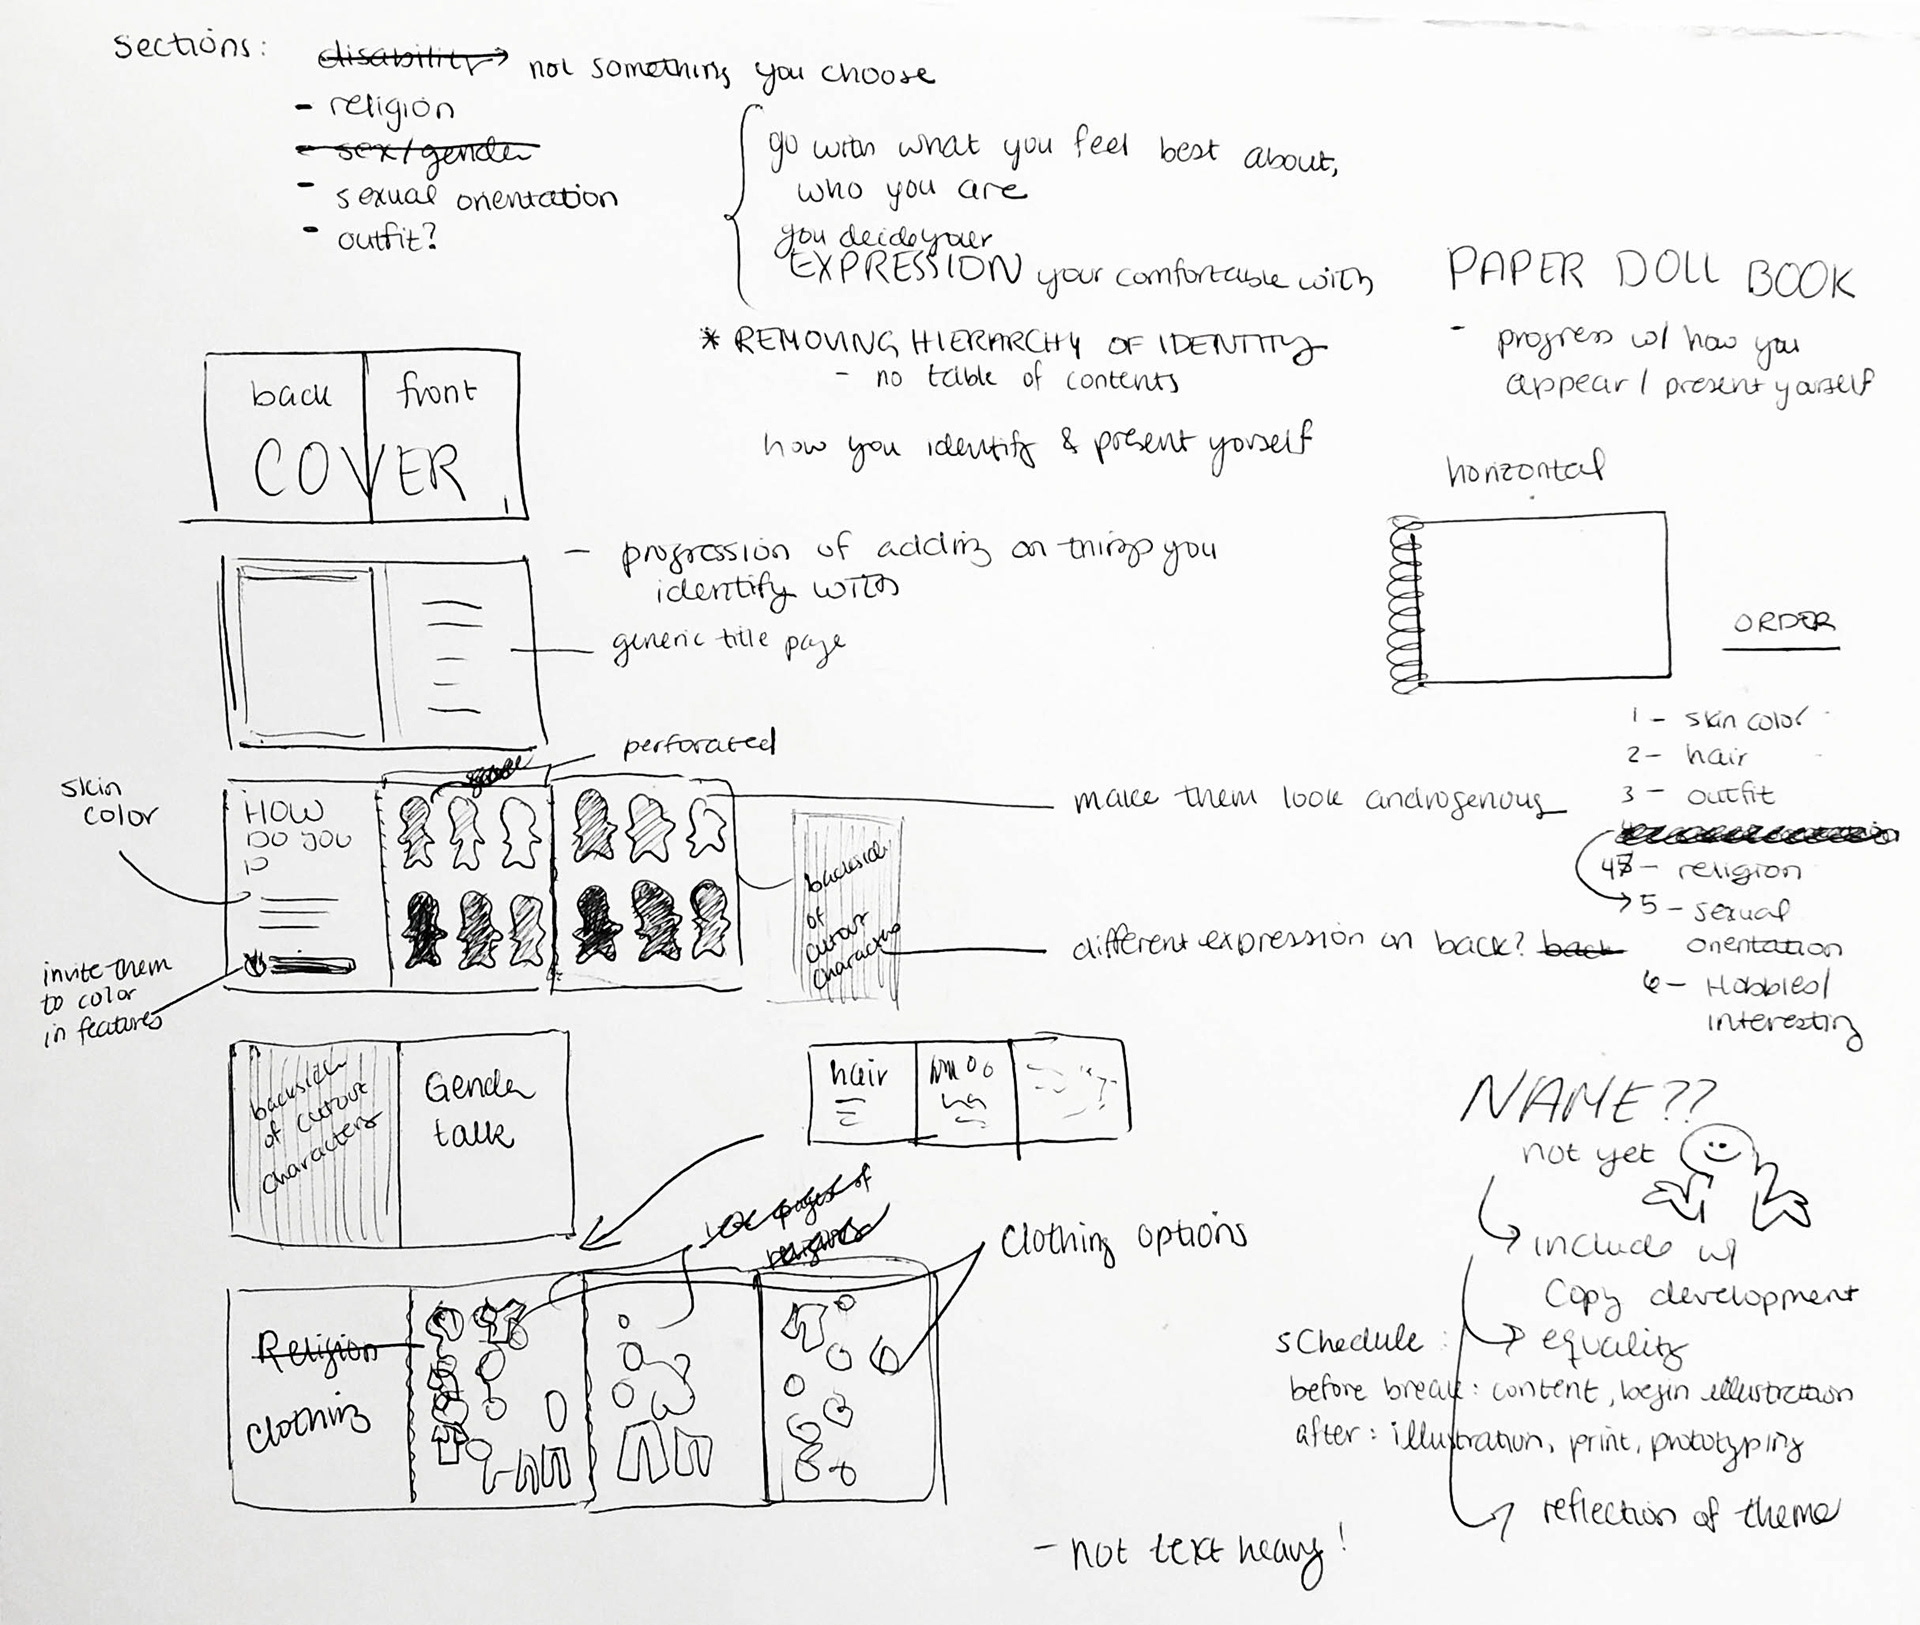 sections:
disability → not something you choose
- religion
- sex/gender
- sexual orientation
- outfit?
go with what you feel best about,
who you are
you decide your
EXPRESSION your comfortable with
* REMOVING HIERARCHY OF IDENTITY
- no table of contents
how you identify & present yorself
PAPER DOLL BOOK
- progress w/ how you
appear / present yourself
horizontal
back front
COVER
- progression of adding on things you
identify with
generic title page
perforated
skin
color
HOW
DO YOU
ID
invite them
to color
in features
make them look androgenous
backside
of
cutout
characters
different expression on back? back
ORDER
1 - skin color
2 - hair
3 - outfit
4 - religion
5 - sexual
orientation
6 - Hobbies/
interesting
backside
of cutout
characters
Gender
talk
hair
pages of
religions
Clothing options
Religion
clothing
NAME??
not yet
include w/
copy development
equality
schedule:
before break: content, begin illustration
after: illustration, print, prototyping
reflection of theme
- not text heavy!